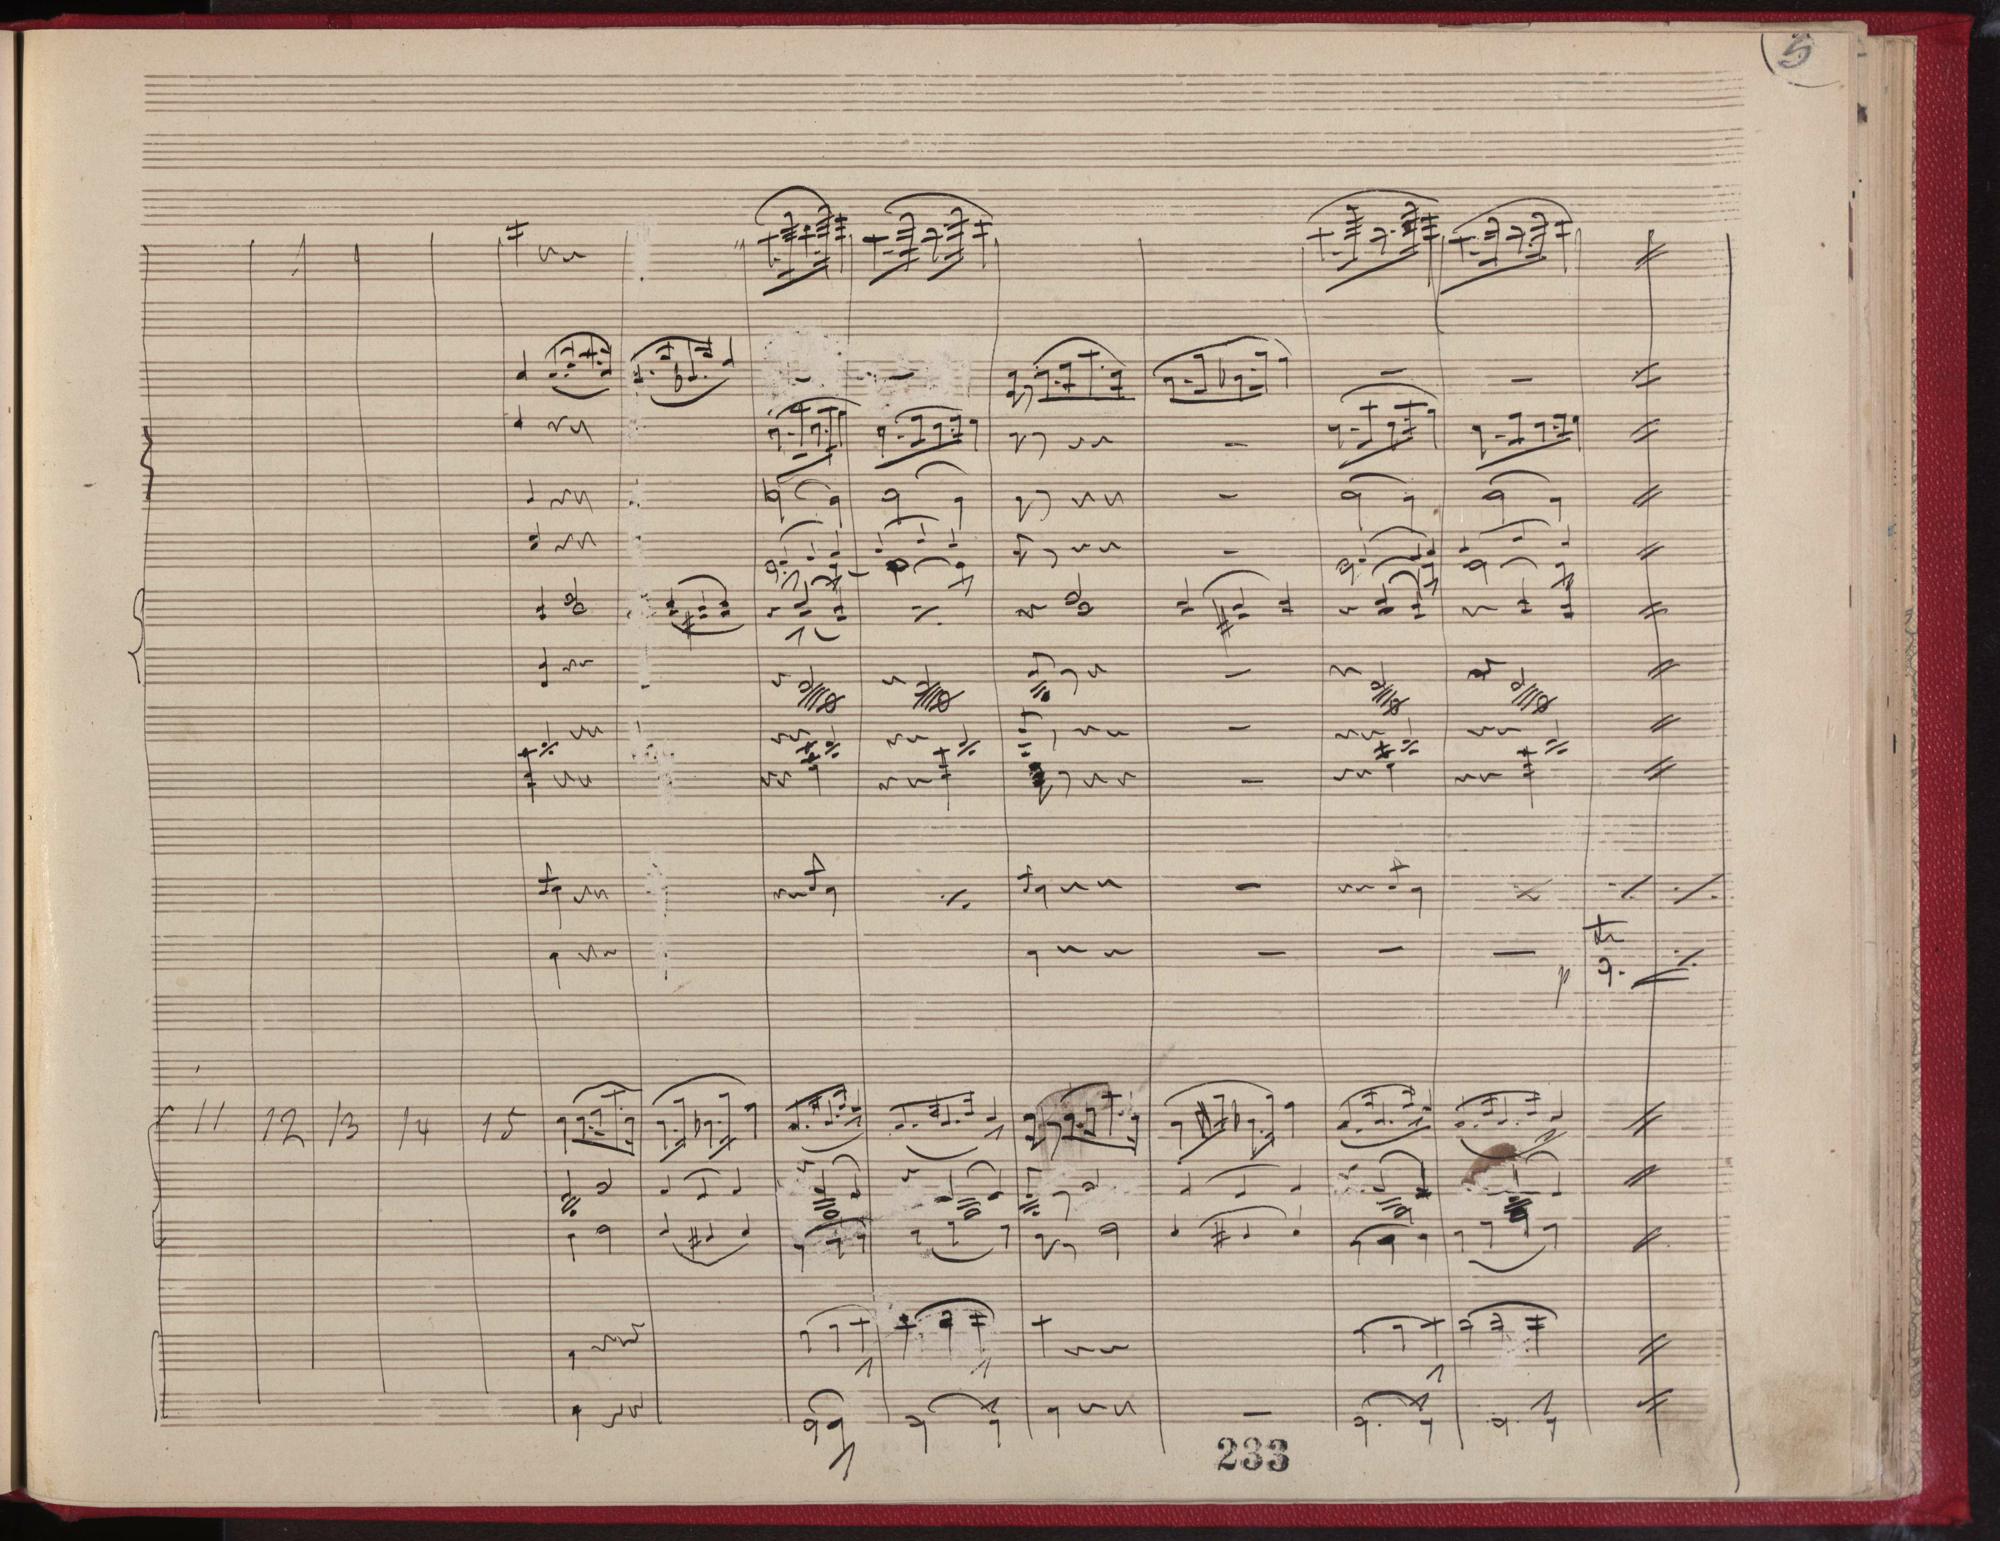 5
tr
p
11 12 13 14 15
233